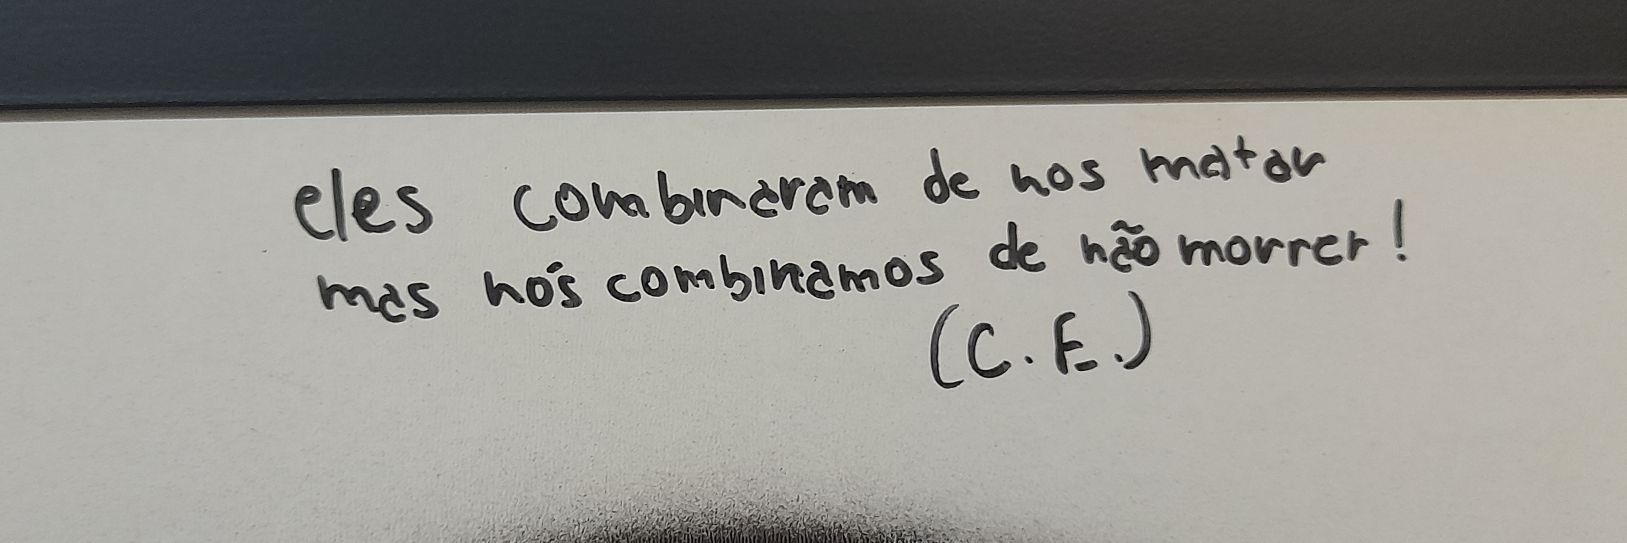 eles combinaram de nos matar
mas nós combinamos de não morrer!
(C.E.)